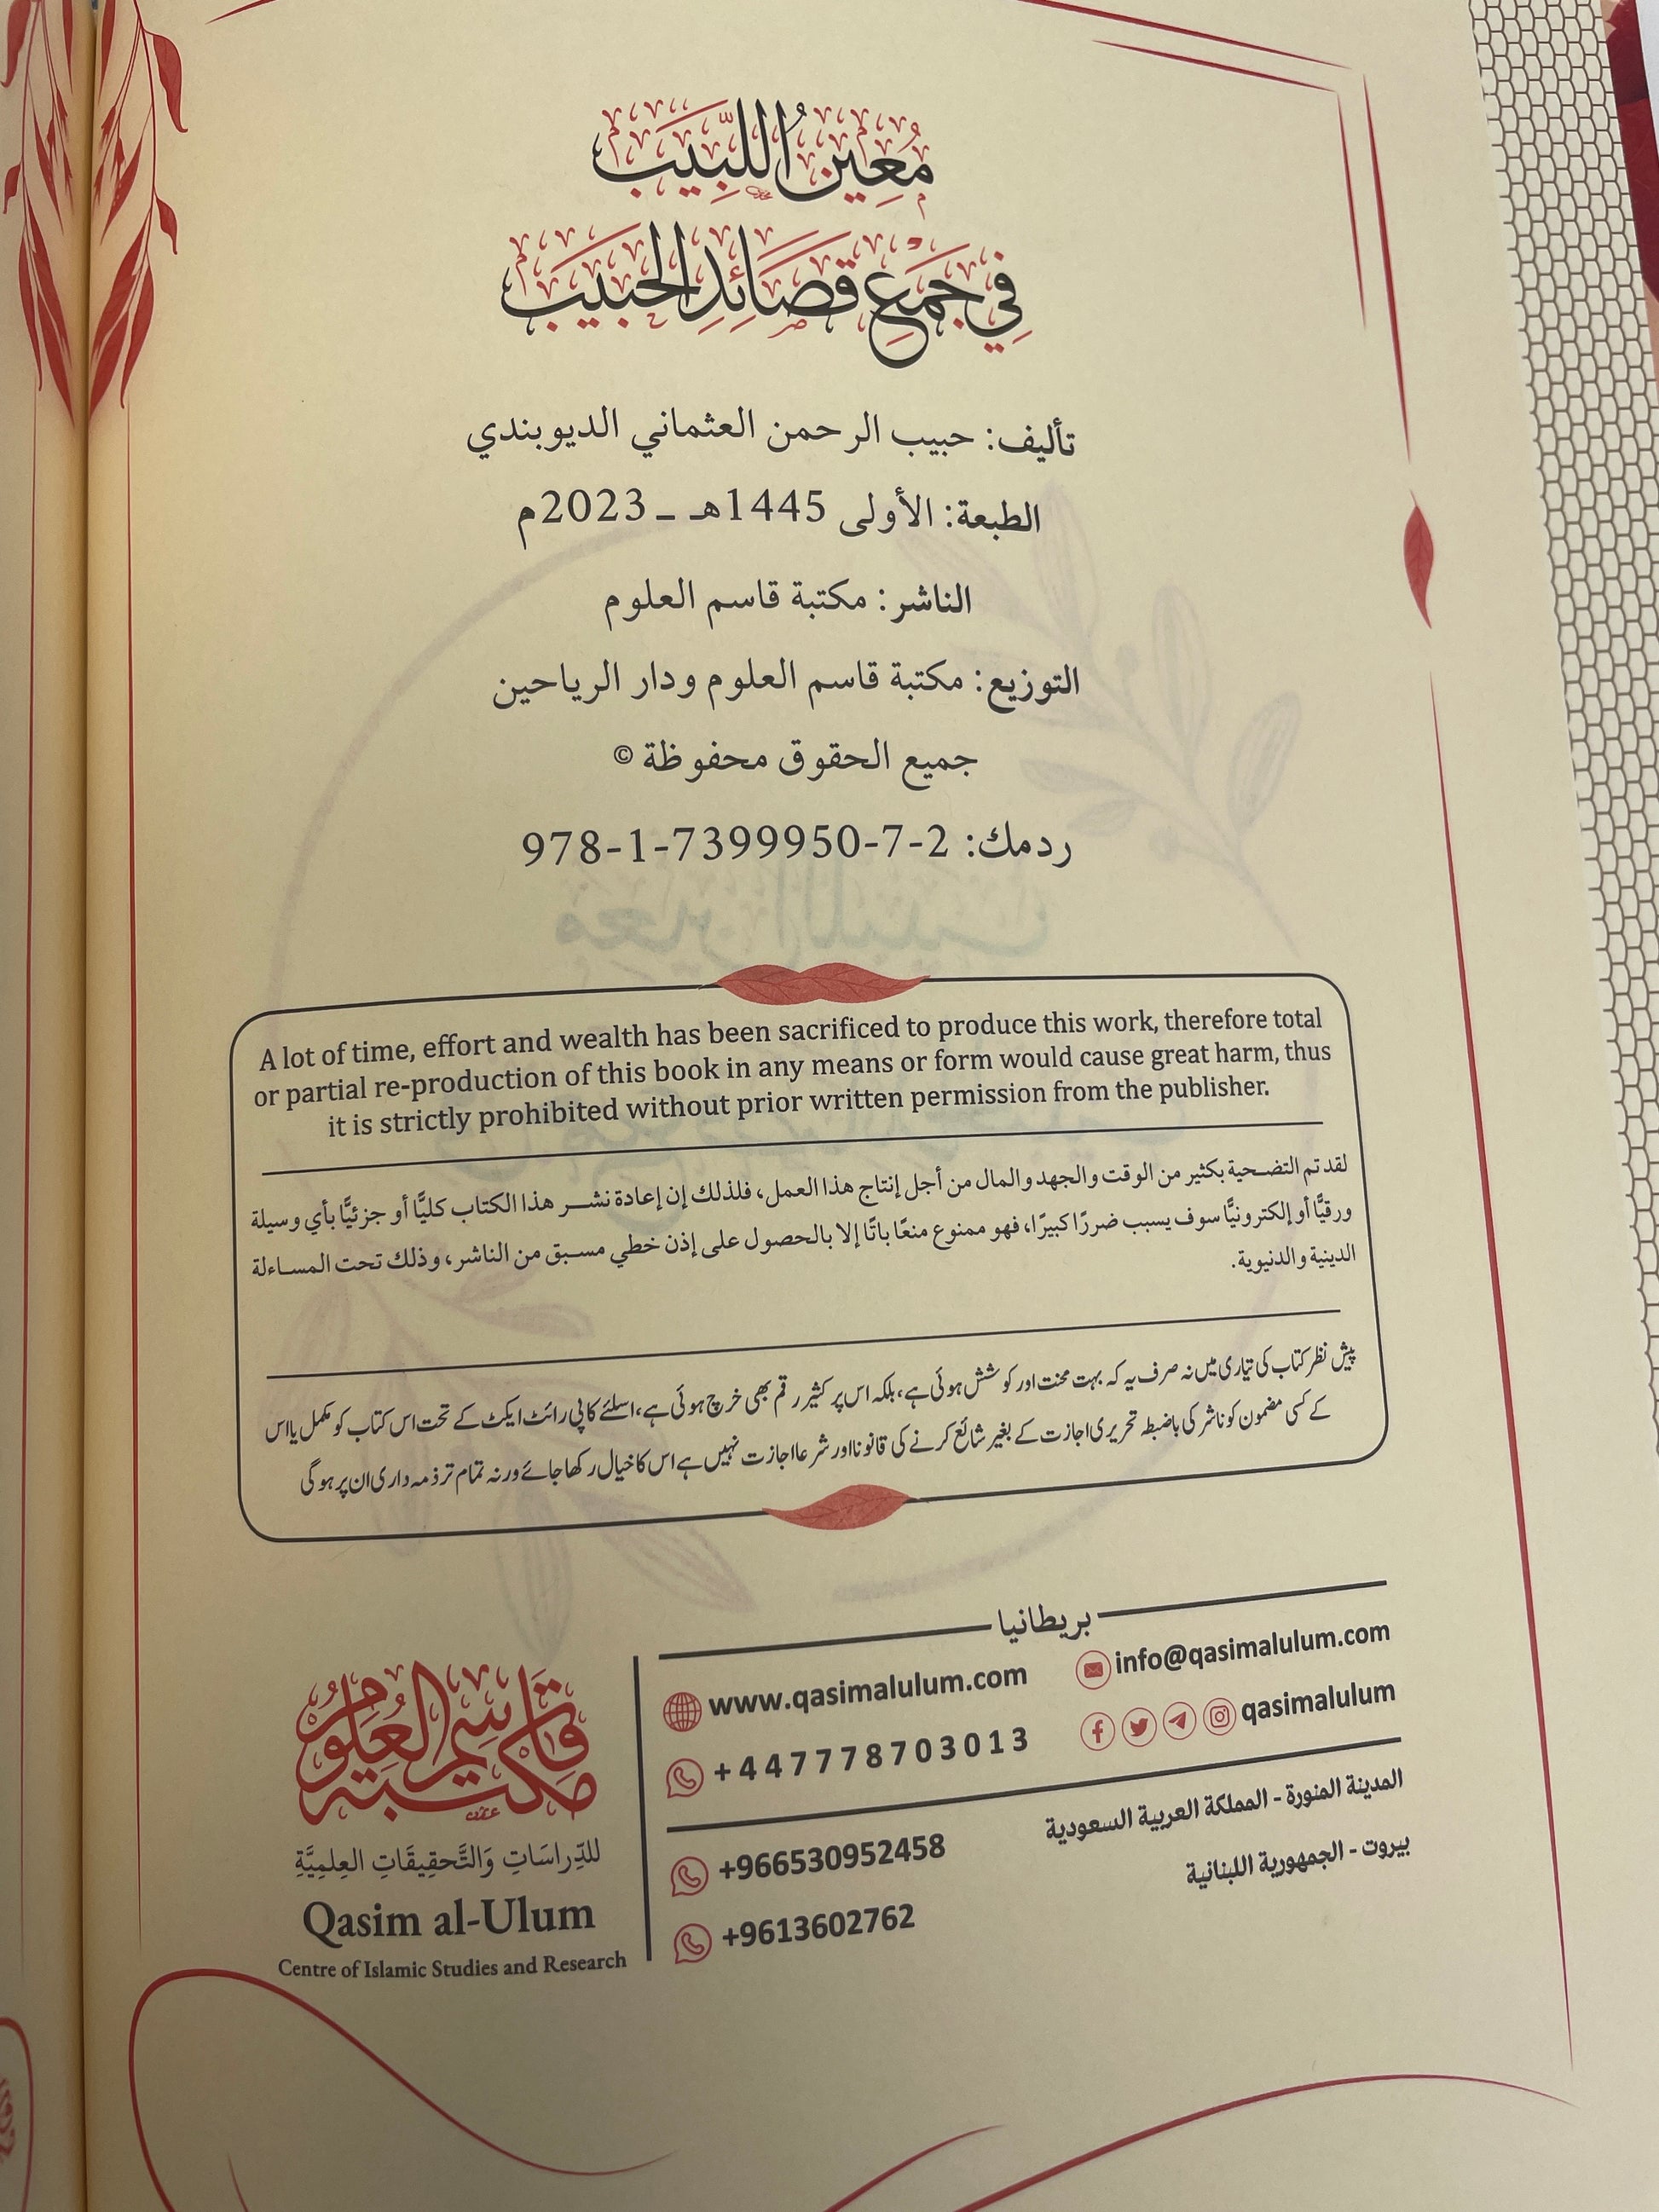 مُعِينُ اللَّبِيبِ
فِي جَمْعِ قَصَائِدِ الْحَبِيبِ
تأليف: حبيب الرحمن العثماني الديوبندي
الطبعة: الأولى 1445هـ ـ 2023م
الناشر: مكتبة قاسم العلوم
التوزيع: مكتبة قاسم العلوم ودار الرياحين
جميع الحقوق محفوظة ©
ردمك: 978-1-7399950-7-2
A lot of time, effort and wealth has been sacrificed to produce this work, therefore total
or partial re-production of this book in any means or form would cause great harm, thus
it is strictly prohibited without prior written permission from the publisher.
لقد تم التضحية بكثير من الوقت والجهد والمال من أجل إنتاج هذا العمل، فلذلك إن إعادة نشر هذا الكتاب كليًّا أو جزئيًّا بأي وسيلة
ورقيًّا أو إلكترونيًّا سوف يسبب ضررًا كبيرًا، فهو ممنوع منعًا باتًا إلا بالحصول على إذن خطي مسبق من الناشر، وذلك تحت المساءلة
الدينية والدنيوية.
پیش نظر کتاب کی تیاری میں نہ صرف یہ کہ بہت محنت اور کوشش ہوئی ہے، بلکہ اس پر کثیر رقم بھی خرچ ہوئی ہے، اسلئے کاپی رائٹ ایکٹ کے تحت اس کتاب کو مکمل یا اس
کے کسی مضمون کو ناشر کی باضبطہ تحریری اجازت کے بغیر شائع کرنے کی قانونا اور شرعا اجازت نہیں ہے اس کا خیال رکھا جائے ورنہ تمام تر ذمہ داری ان پر ہوگی
بريطانيا
www.qasimalulum.com
info@qasimalulum.com
+447778703013
qasimalulum
المدينة المنورة - المملكة العربية السعودية
+966530952458
بيروت - الجمهورية اللبنانية
+9613602762
مكتبة قاسم العلوم
للدِّراسَاتِ وَالتَّحقِيقَاتِ العِلمِيَّةِ
Qasim al-Ulum
Centre of Islamic Studies and Research